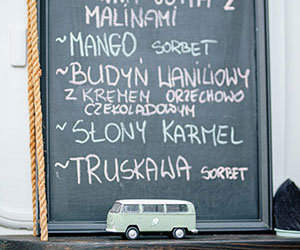 MALINAMI
~MANGO SORBET
~BUDYŃ WANILIOWY
Z KREMEM ORZECHOWO
CZEKOLADOWYM
~SŁONY KARMEL
~TRUSKAWA SORBET